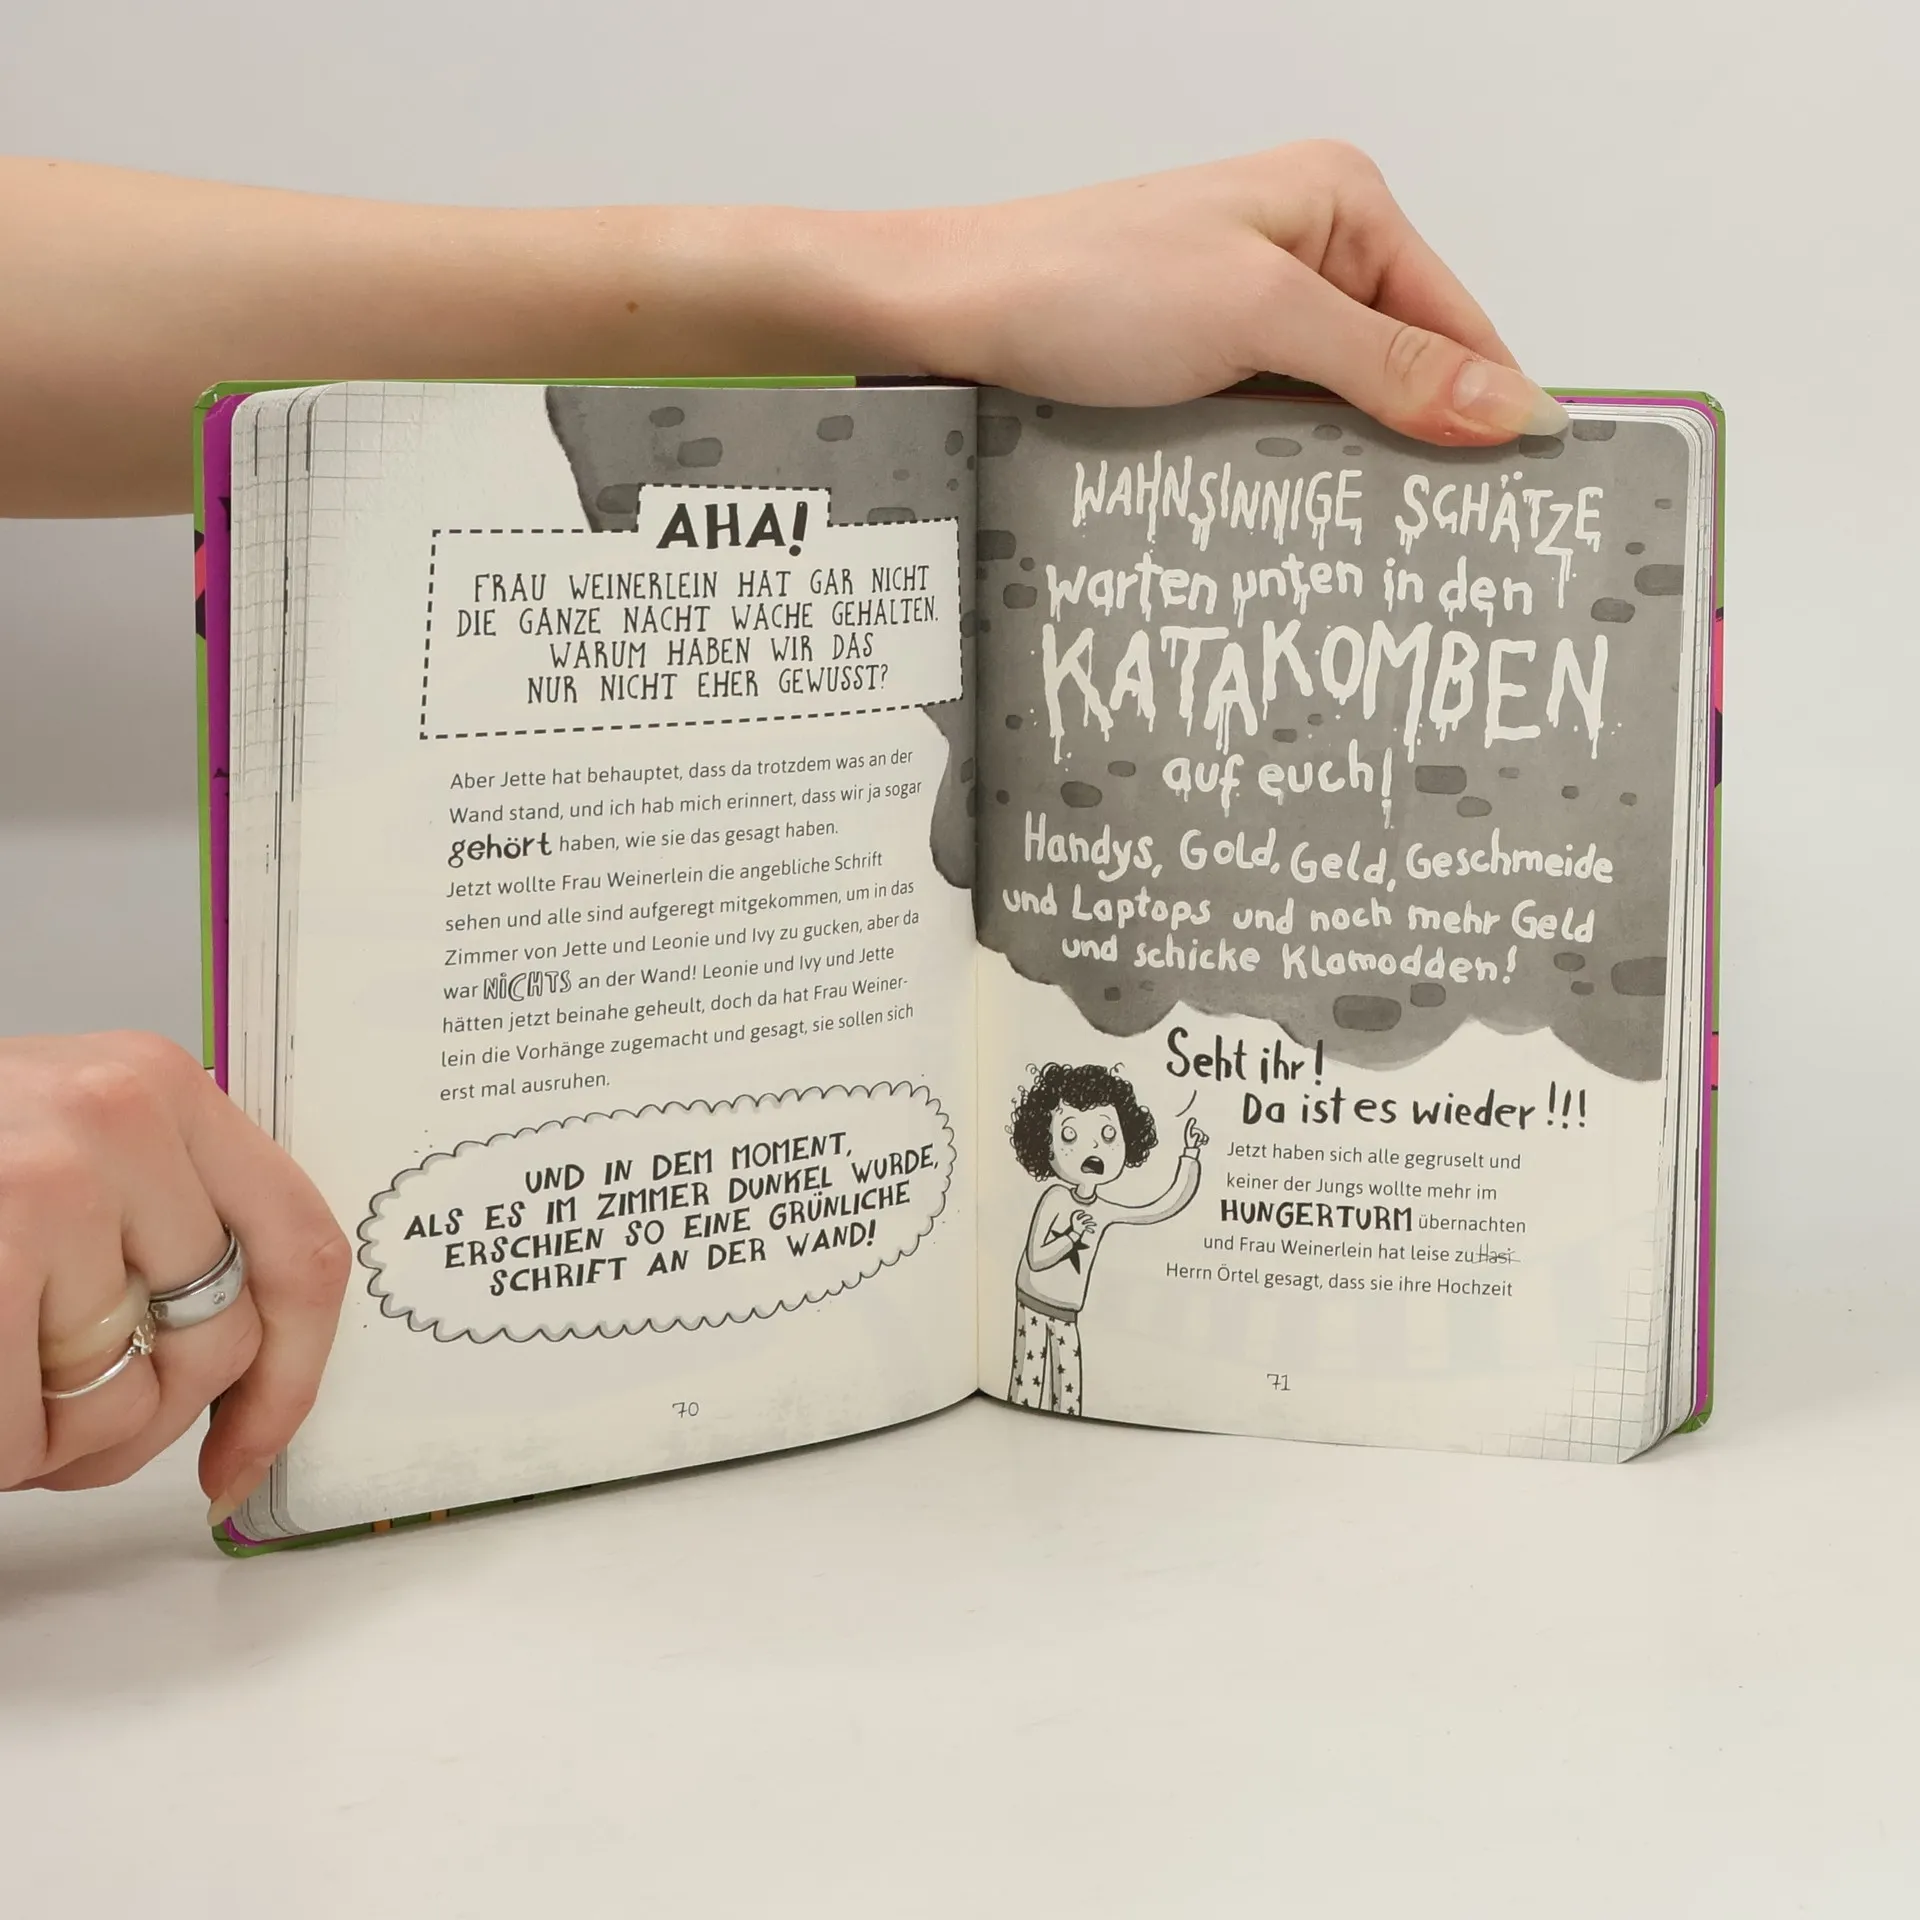 AHA!
FRAU WEINERLEIN HAT GAR NICHT
DIE GANZE NACHT WACHE GEHALTEN.
WARUM HABEN WIR DAS
NUR NICHT EHER GEWUSST?
Aber Jette hat behauptet, dass da trotzdem was an der
Wand stand, und ich hab mich erinnert, dass wir ja sogar
gehört haben, wie sie das gesagt haben.
Jetzt wollte Frau Weinerlein die angebliche Schrift
sehen und alle sind aufgeregt mitgekommen, um in das
Zimmer von Jette und Leonie und Ivy zu gucken, aber da
war NICHTS an der Wand! Leonie und Ivy und Jette
hätten jetzt beinahe geheult, doch da hat Frau Weiner-
lein die Vorhänge zugemacht und gesagt, sie sollen sich
erst mal ausruhen.
UND IN DEM MOMENT,
ALS ES IM ZIMMER DUNKEL WURDE,
ERSCHIEN SO EINE GRÜNLICHE
SCHRIFT AN DER WAND!
70
WAHNSINNIGE SCHÄTZE
warten unten in den
KATAKOMBEN
auf euch!
Handys, Gold, Geld, Geschmeide
und Laptops und noch mehr Geld
und schicke Klamodden!
Seht ihr!
Da ist es wieder!!!
Jetzt haben sich alle gegruselt und
keiner der Jungs wollte mehr im
HUNGERTURM übernachten
und Frau Weinerlein hat leise zu Hasi
Herrn Örtel gesagt, dass sie ihre Hochzeit
71